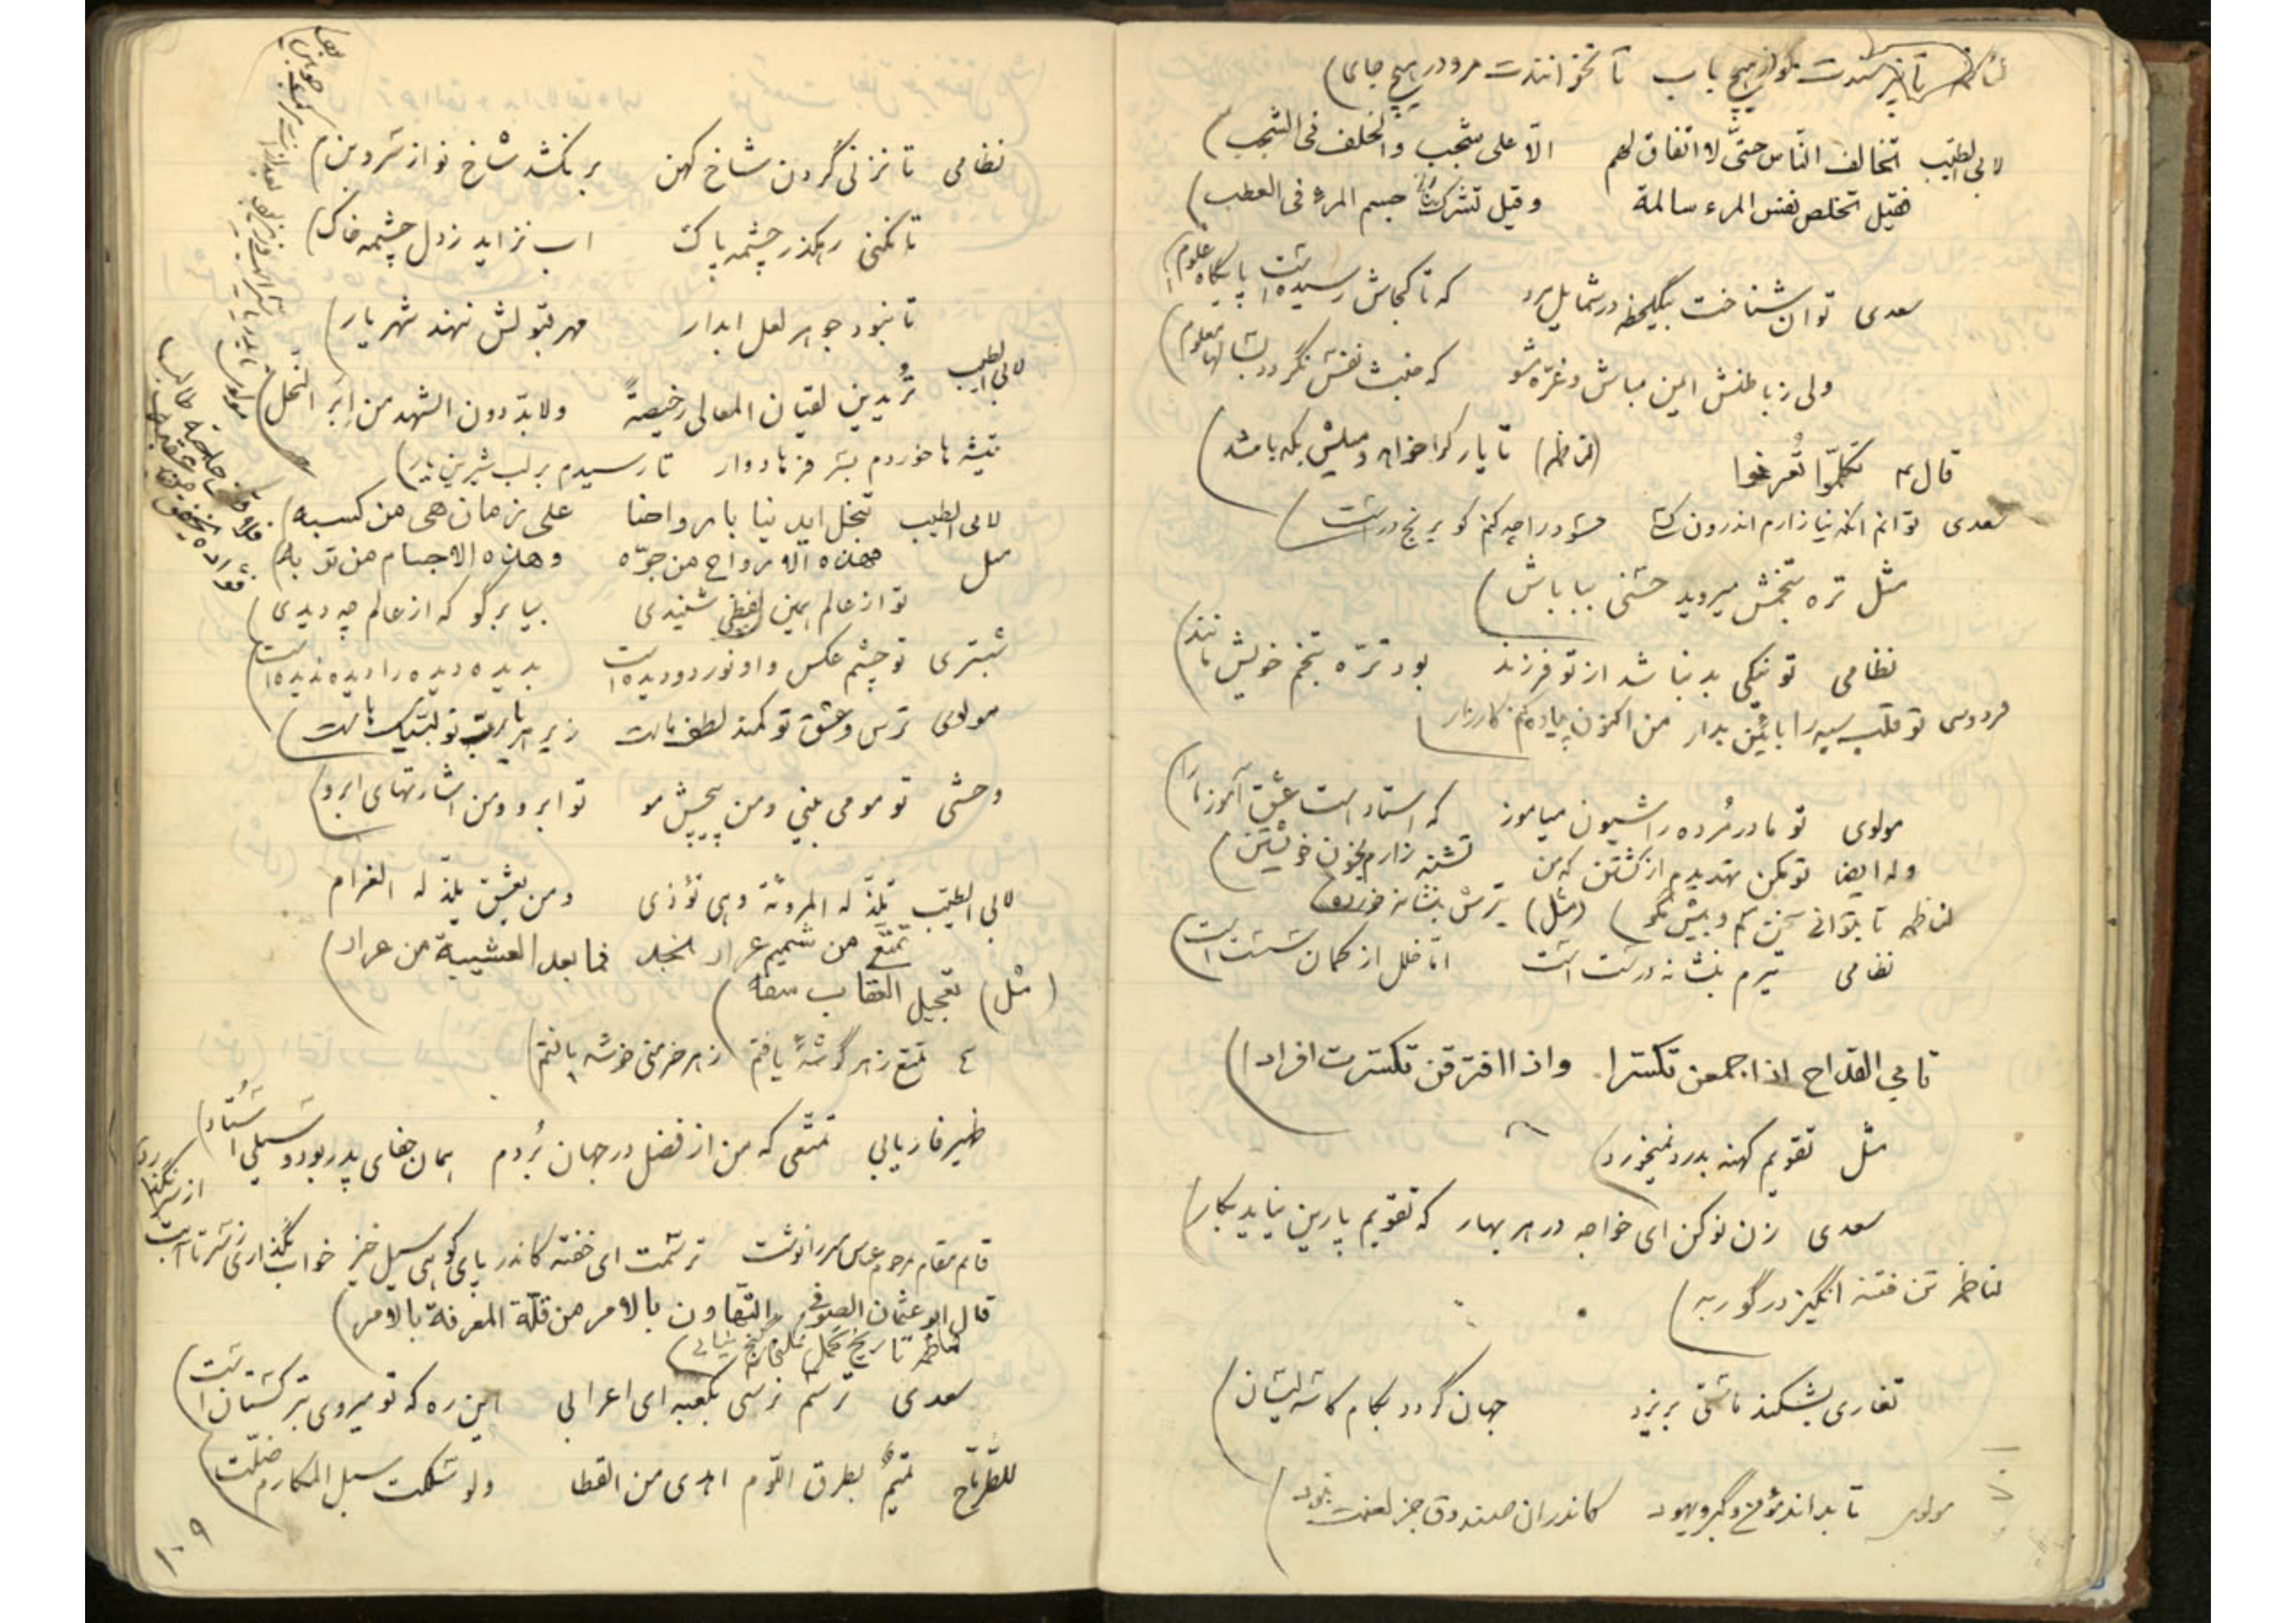 لناظمه تا نپرسندت مگو از هیچ باب تا نخوانندت مرو در هیچ جای
لابی الطیب تخالف الناس حتّی لا اتفاق لهم الّا علی شجب والخلف فی الشجب
فقیل تخلص نفس المرء سالمة وقیل تشرک جسم المرء فی العطب
سعدی توان شناخت بیکلحظه در شمایل مرد که تا کجاش رسیده است پایگاه علوم
ولی ز باطنش ایمن مباش و غرّه مشو که خبث نفس نگردد بسالها معلوم
قال ع تکلّموا تُعرفوا (لناظمه) تا یار کرا خواهد و میلش بکه باشد
سعدی توانم آنکه نیازارم اندرون کسی حسود را چه کنم کو برنج در است
مثل تره بتخمش میرود حسنی بباباش
نظامی تو نیکی بد نباشد از تو فرزند بود ترّه بتخم خویش مانند
فردوسی تو قلب سپه را بآئین بدار من اکنون پیاده کنم کارزار
مولوی تو مادر مُرده را شیون میاموز که استاد است عشق آموز ما را
وله ایضا تو مکن تهدیدم از کشتن که من تشنه زارم بخون خویشتن
لناظمه تا بتوانی سخن کم و بیش مگو (مثل) تیرش بنشانه خورده
نظامی تیرم بنشانه درست است امّا خلل از کمان سست است
تابی القداح اذا جمعن تکسّرا واذا افترقن تکسّرت افرادا
مثل تقویم کهنه بدرد نمیخورد
سعدی زن نو کن ای خواجه در هر بهار که تقویم پارین نیاید بکار
لناظمه تن فتنه انگیز در گور به
تغاری بشکند ماستی بریزد جهان گردد بکام کاسه لیسان
مولوی تا بداند مؤمن و گبر و یهود کاندران صندوق جز لعنت نبود
نظامی تا نزنی گردن شاخ کهن بر نکشد شاخ نو از سرو بن
تا نکنی رهگذر چشمه پاک آب نزاید ز دل چشمه خاک
تا نبود جوهر لعل آبدار مهر قبولش ننهد شهریار
لابی الطیب تُریدین لقیان المعالی رخیصةً ولابدّ دون الشهد من اِبَر النحل
تیشه ها خوردم بسر فرهادوار تا رسیدم بر لب شیرین یار
لابی الطیب تبخل ایدینا بارواحنا علی زمان هی من کسبه
فهذه الارواح من جوّه وهذه الاجسام من تربه
مثل تو از عالم همین لفظی شنیدی بیا برگو که از عالم چه دیدی
شبستری تو چشم عکسی و او نور دو دیده است بدیده دیده را دیده ندیده است
مولوی ترس و عشق تو کمند لطف ماست زیر هر یارب تو لبّیک هاست
وحشی تو مو می بینی و من پیچش مو تو ابرو و من اشارتهای ابرو
لابی الطیّب تلذّ له المروئة وهی تؤذی ومن یعشق یلذّ له الغرام
تمتّع من شمیم عرار نجد فما بعد العشیة من عرار
(مثل) تعجیل العقاب سفه
ع تمتع ز هر گوشهٔ یافتم ز هر خرمنی خوشه یافتم
ظهیر فاریابی تمتّعی که من از فضل در جهان بُردم همان جفای پدر بود و سیلی استاد
قائم مقام مرحوم بعباس میرزا نوشت ترسمت ای خفته کاندر پای کوهی سیل خیز خواب نگذاری ز سر تا آبت از سر نگذرد
قال ابو عثمان الصوفی التهاون بالامر من قلّة المعرفة بالامر
سعدی ترسم نرسی بکعبه ای اعرابی این ره که تو میروی بترکستان است
للطّرماح تمیمٌ بطرق اللؤم اهدی من القطا ولو سلکت سبل المکارم ضلّت
۱۰۹